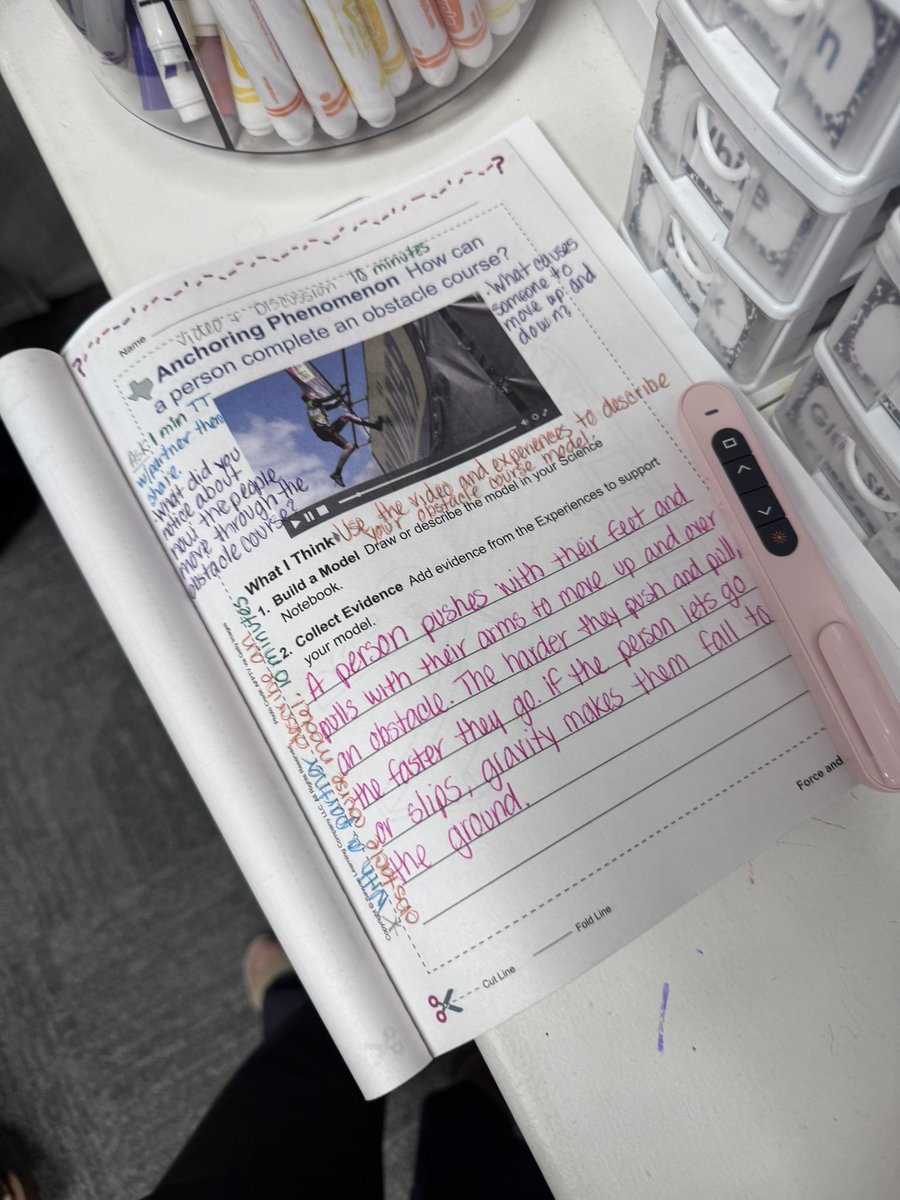 Name
Video + Discussion 10 minutes
Anchoring Phenomenon How can
a person complete an obstacle course?
• What causes
someone to
move up and
down?
Ask: 1 min TT
w/partner then
share.
• What did you
notice about
how the people
move through the
obstacle course?
What I Think Use the video and experiences to describe
your obstacle course model.
1. Build a Model Draw or describe the model in your Science
Notebook.
2. Collect Evidence Add evidence from the Experiences to support
your model.
A person pushes with their feet and
pulls with their arms to move up and over
an obstacle. The harder they push and pull,
the faster they go. if the person lets go
or slips, gravity makes them fall to
the ground.
10 minutes
* With a partner describe an
obstacle course model.
Force and
Cut Line
Fold Line